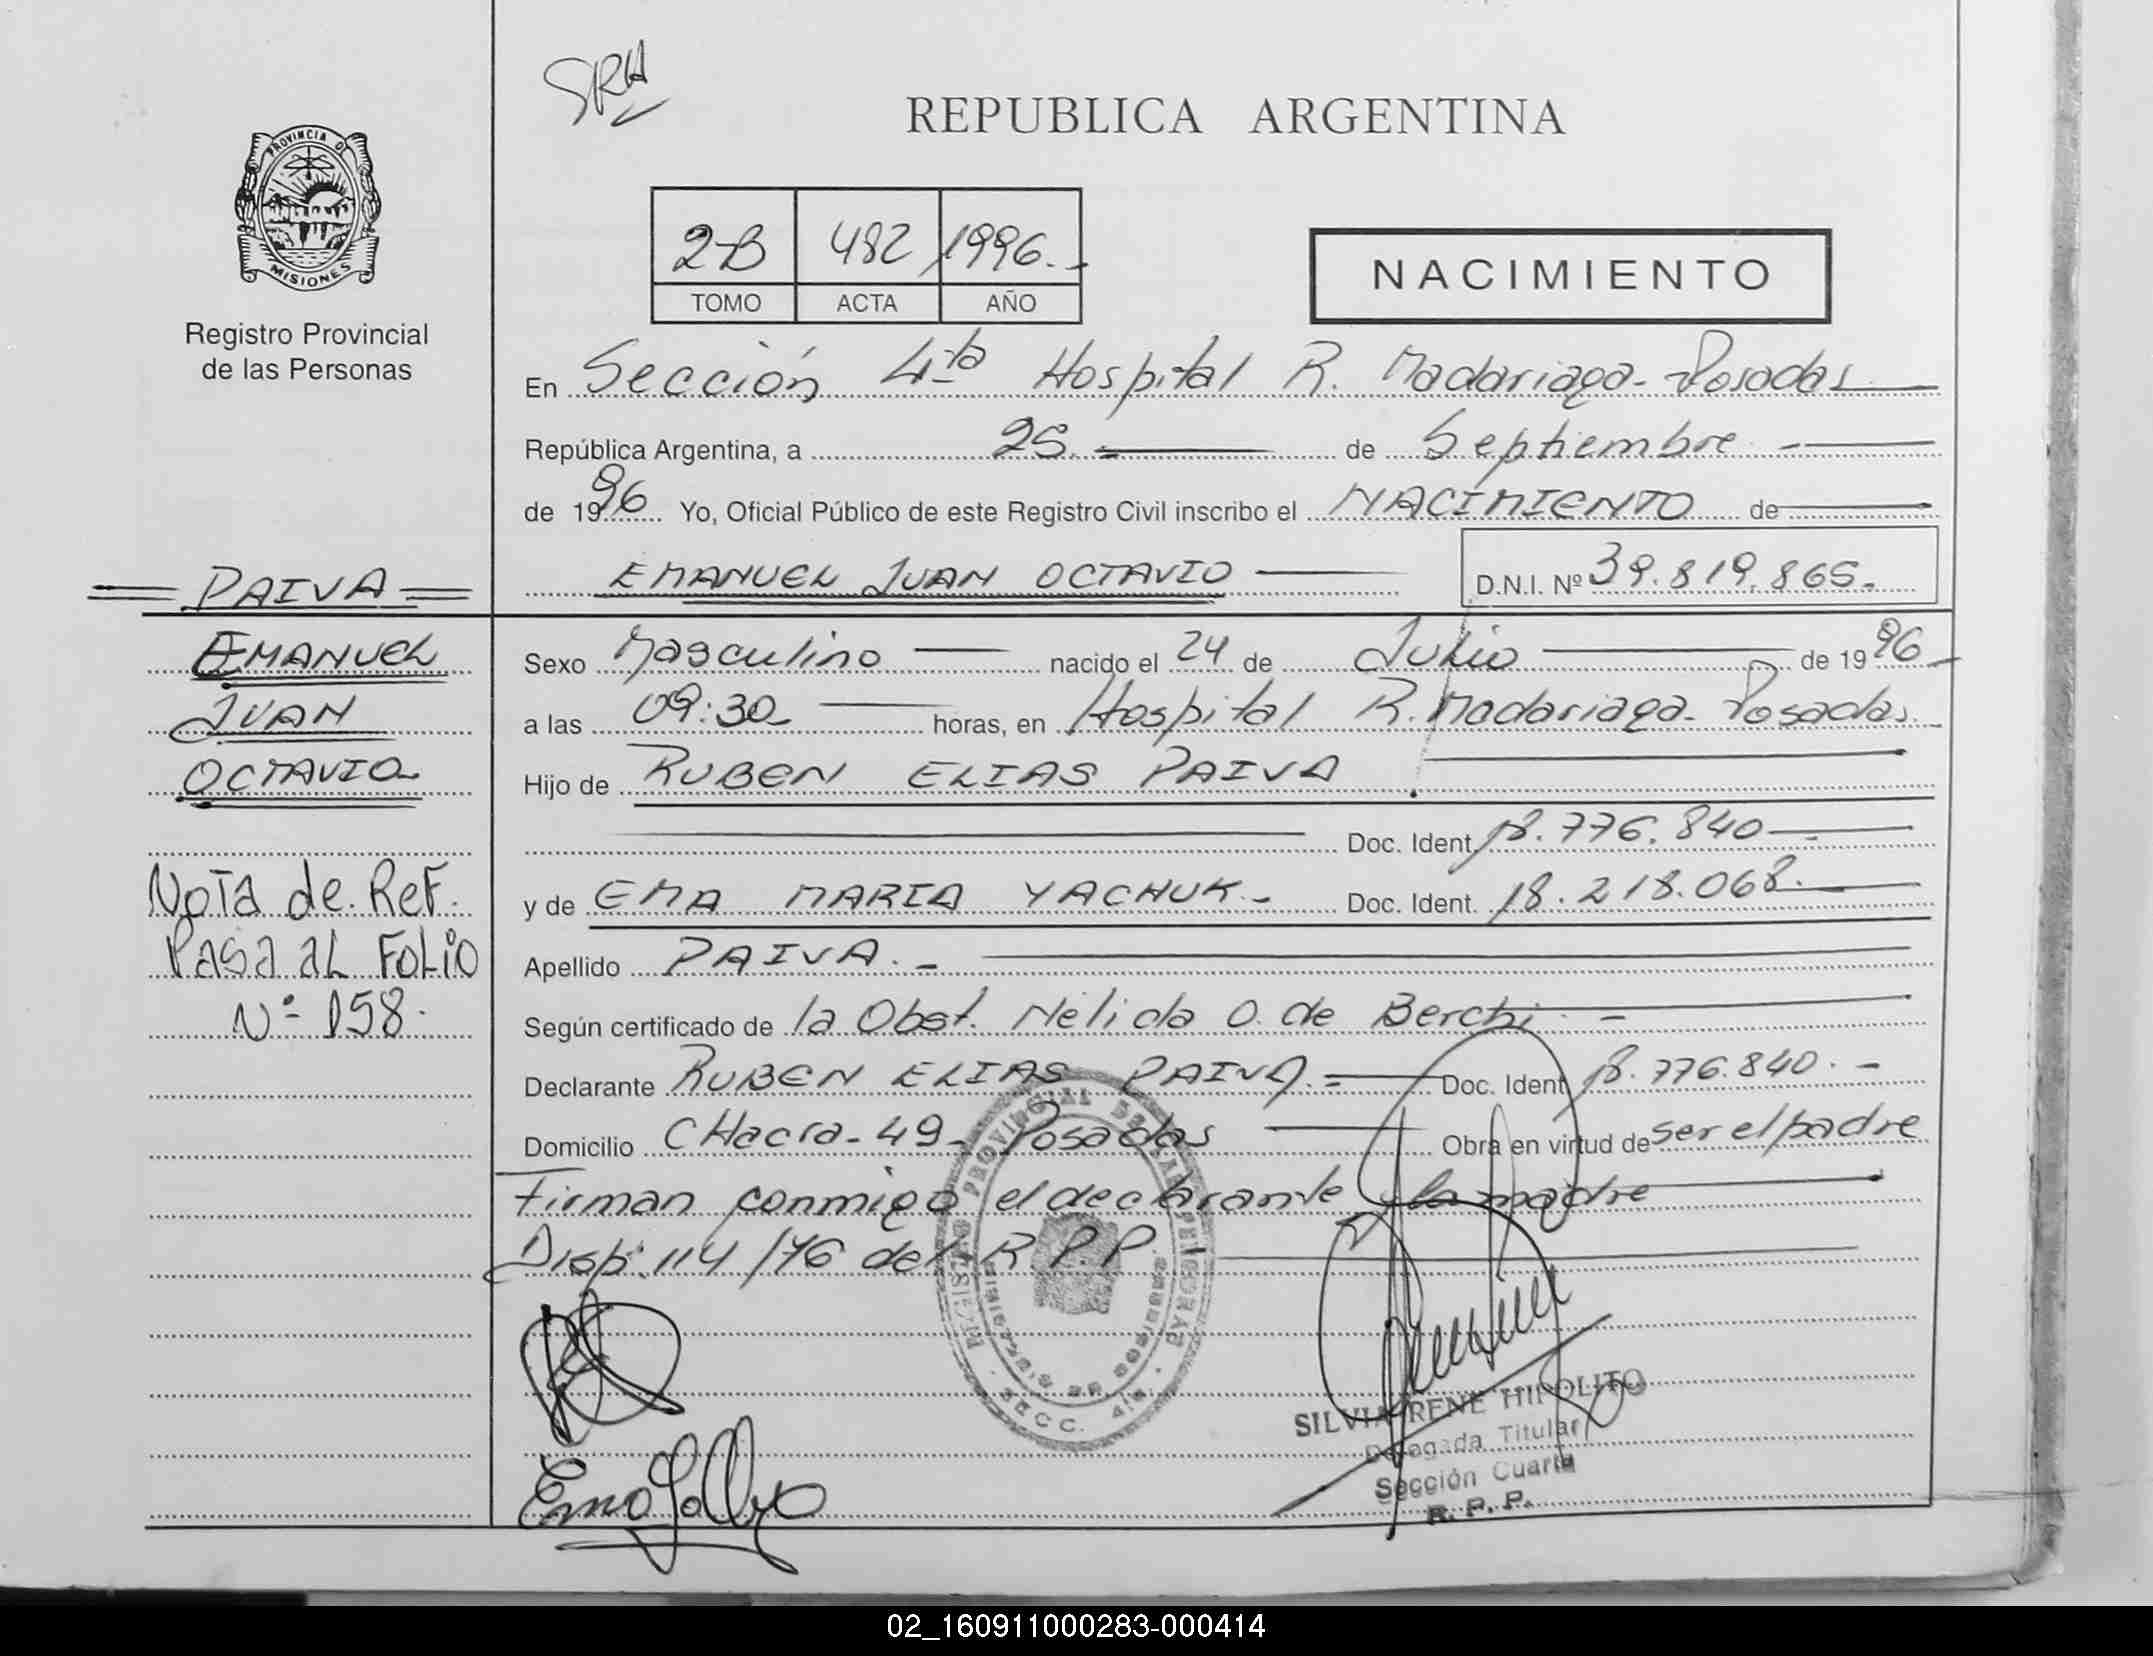 SRH
REPUBLICA ARGENTINA
PROVINCIA DE
MISIONES
Registro Provincial
de las Personas
2-B 482 1996.-
TOMO ACTA AÑO
NACIMIENTO
En Sección 4ta Hospital R. Madariaga - Posadas
República Argentina, a 25.= de Septiembre -
de 1996 Yo, Oficial Público de este Registro Civil inscribo el NACIMIENTO de
= PAIVA = EMANUEL JUAN OCTAVIO D.N.I. Nº 39.819.865.-
EMANUEL
JUAN
OCTAVIO
Sexo Masculino nacido el 24 de Julio de 1996-
a las 09:30 horas, en Hospital R. Madariaga - Posadas.
Hijo de RUBEN ELIAS PAIVA
Doc. Ident. 18.776.840
y de EMA MARIA YACHUK.- Doc. Ident. 18.218.068.
Nota de Ref.
Pasa al Folio
N° 158.
Apellido PAIVA.-
Según certificado de la Obst. Nelida O. de Berchi -
Declarante RUBEN ELIAS PAIVA.= Doc. Ident. 18.776.840.-
Domicilio CHacra-49- Posadas Obra en virtud de ser el padre
Firman conmigo el declarante y la madre
Disp. 114/76 del R.P.P.
REGISTRO PROVINCIAL DE LAS PERSONAS
SECC. 4ta.
SILVIA IRENE HIPOLITO
Delegada Titular
Sección Cuarta
R. P. P.
02_160911000283-000414